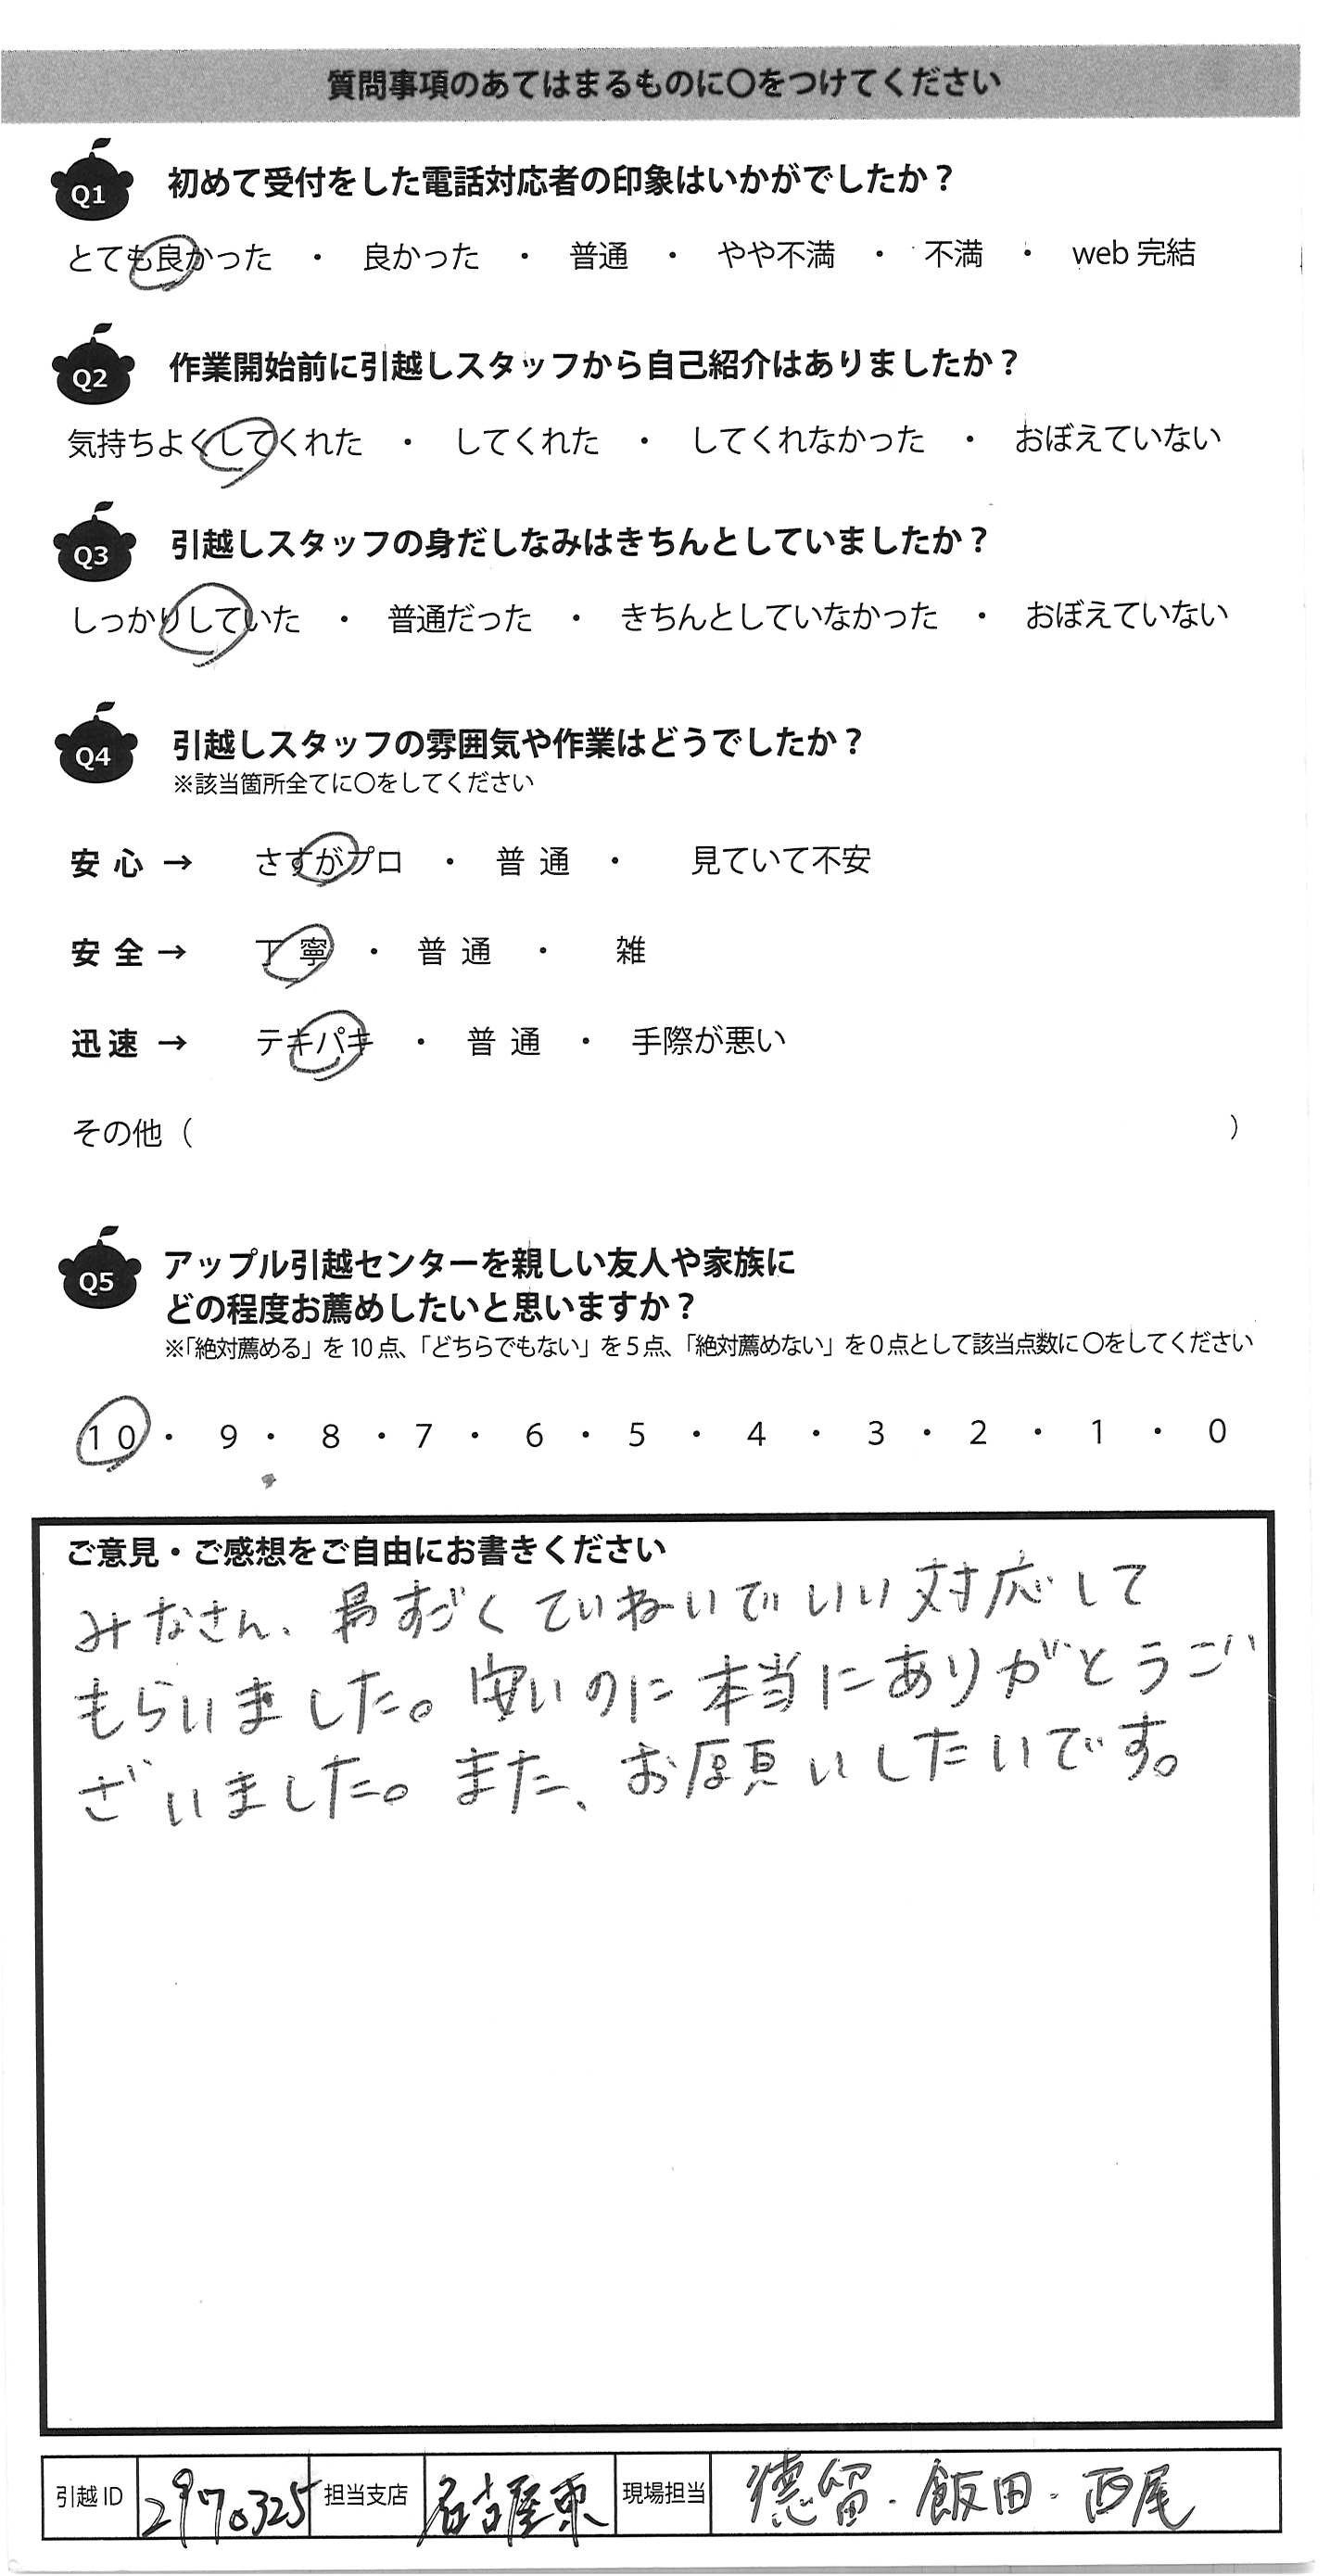 質問事項のあてはまるものに〇をつけてください
Q1 初めて受付をした電話対応者の印象はいかがでしたか？
とても良かった ・ 良かった ・ 普通 ・ やや不満 ・ 不満 ・ web 完結
Q2 作業開始前に引越しスタッフから自己紹介はありましたか？
気持ちよくしてくれた ・ してくれた ・ してくれなかった ・ おぼえていない
Q3 引越しスタッフの身だしなみはきちんとしていましたか？
しっかりしていた ・ 普通だった ・ きちんとしていなかった ・ おぼえていない
Q4 引越しスタッフの雰囲気や作業はどうでしたか？
※該当箇所全てに〇をしてください
安心 → さすがプロ ・ 普通 ・ 見ていて不安
安全 → 丁寧 ・ 普通 ・ 雑
迅速 → テキパキ ・ 普通 ・ 手際が悪い
その他（ ）
Q5 アップル引越センターを親しい友人や家族に
どの程度お薦めしたいと思いますか？
※「絶対薦める」を10点、「どちらでもない」を5点、「絶対薦めない」を0点として該当点数に〇をしてください
10 ・ 9 ・ 8 ・ 7 ・ 6 ・ 5 ・ 4 ・ 3 ・ 2 ・ 1 ・ 0
ご意見・ご感想をご自由にお書きください
みなさん、すごくていねいでいい対応して
もらいました。安いのに本当にありがとうご
ざいました。また、お願いしたいです。
引越ID 2970325 担当支店 名古屋東 現場担当 德留・飯田・西尾